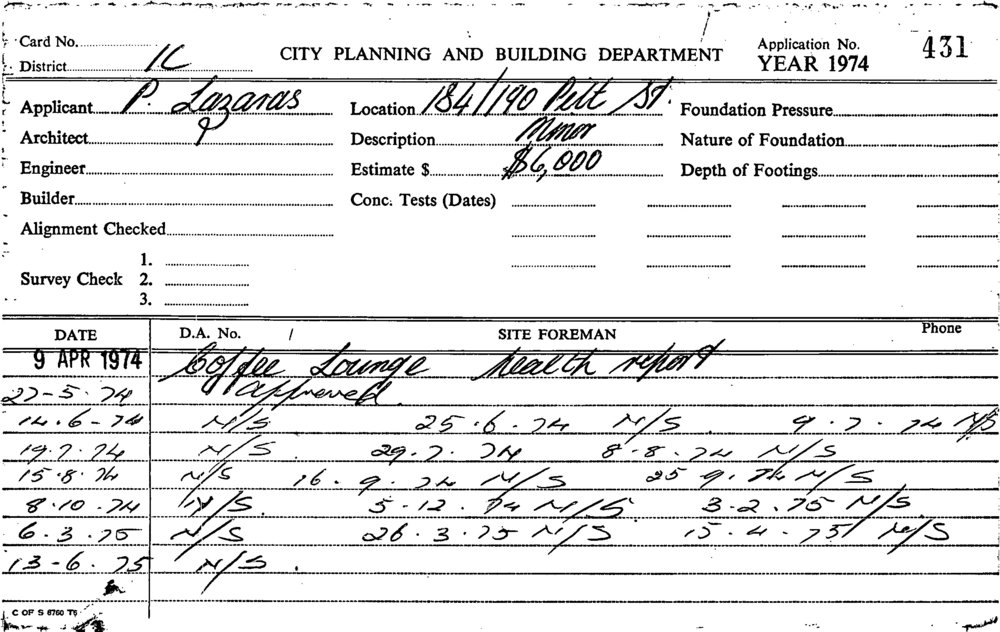 Card No. CITY PLANNING AND BUILDING DEPARTMENT Application No. 431
District YEAR 1974
Applicant P. Lazaras Location 184/190 Pitt St. Foundation Pressure
Architect Description Minor Nature of Foundation
Engineer Estimate $ $6,000 Depth of Footings
Builder Conc. Tests (Dates)
Alignment Checked
1.
Survey Check 2.
3.
DATE D.A. No. / SITE FOREMAN Phone
9 APR 1974 Coffee Lounge health report
27-5-74 approved.
14.6-74 N/S 25.6.74 N/S. 9.7.74 N/S
19.7.74 N/S. 29.7.74 8.8.74 N/S
15.8.74 N/S 16.9.74 N/S 25 9.74 N/S
8.10.74 N/S. 5.12.74 N/S 3.2.75 N/S.
6.3.75 N/S 26.3.75 N/S 15.4.75 N/S
13-6.75 N/S.
C OF S 6760 T6